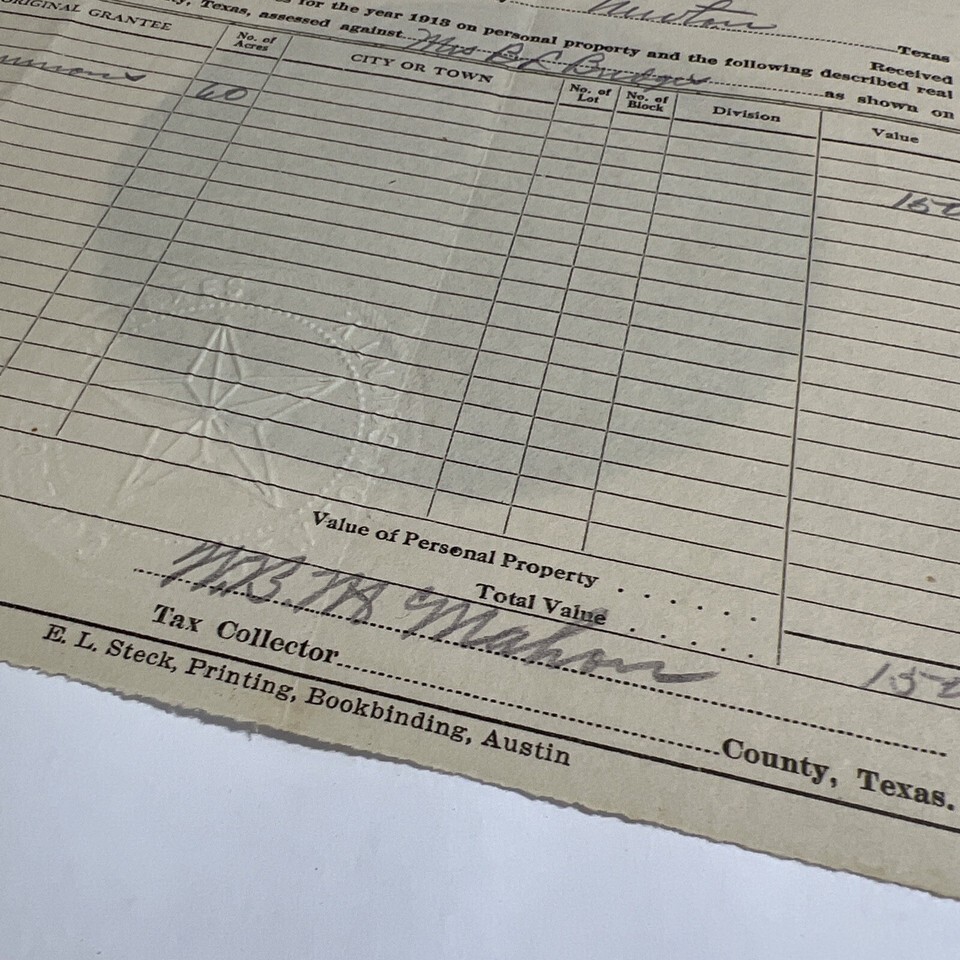 Newton Texas
for the year 1913 on personal property and the following described real
Received
Texas, assessed against Mrs B as shown on
ORIGINAL GRANTEE No. of Acres CITY OR TOWN No. of Lot No. of Block Division Value
60 150
Value of Personal Property
Total Value 150
W.B. McMahon
Tax Collector County, Texas.
E. L. Steck, Printing, Bookbinding, Austin